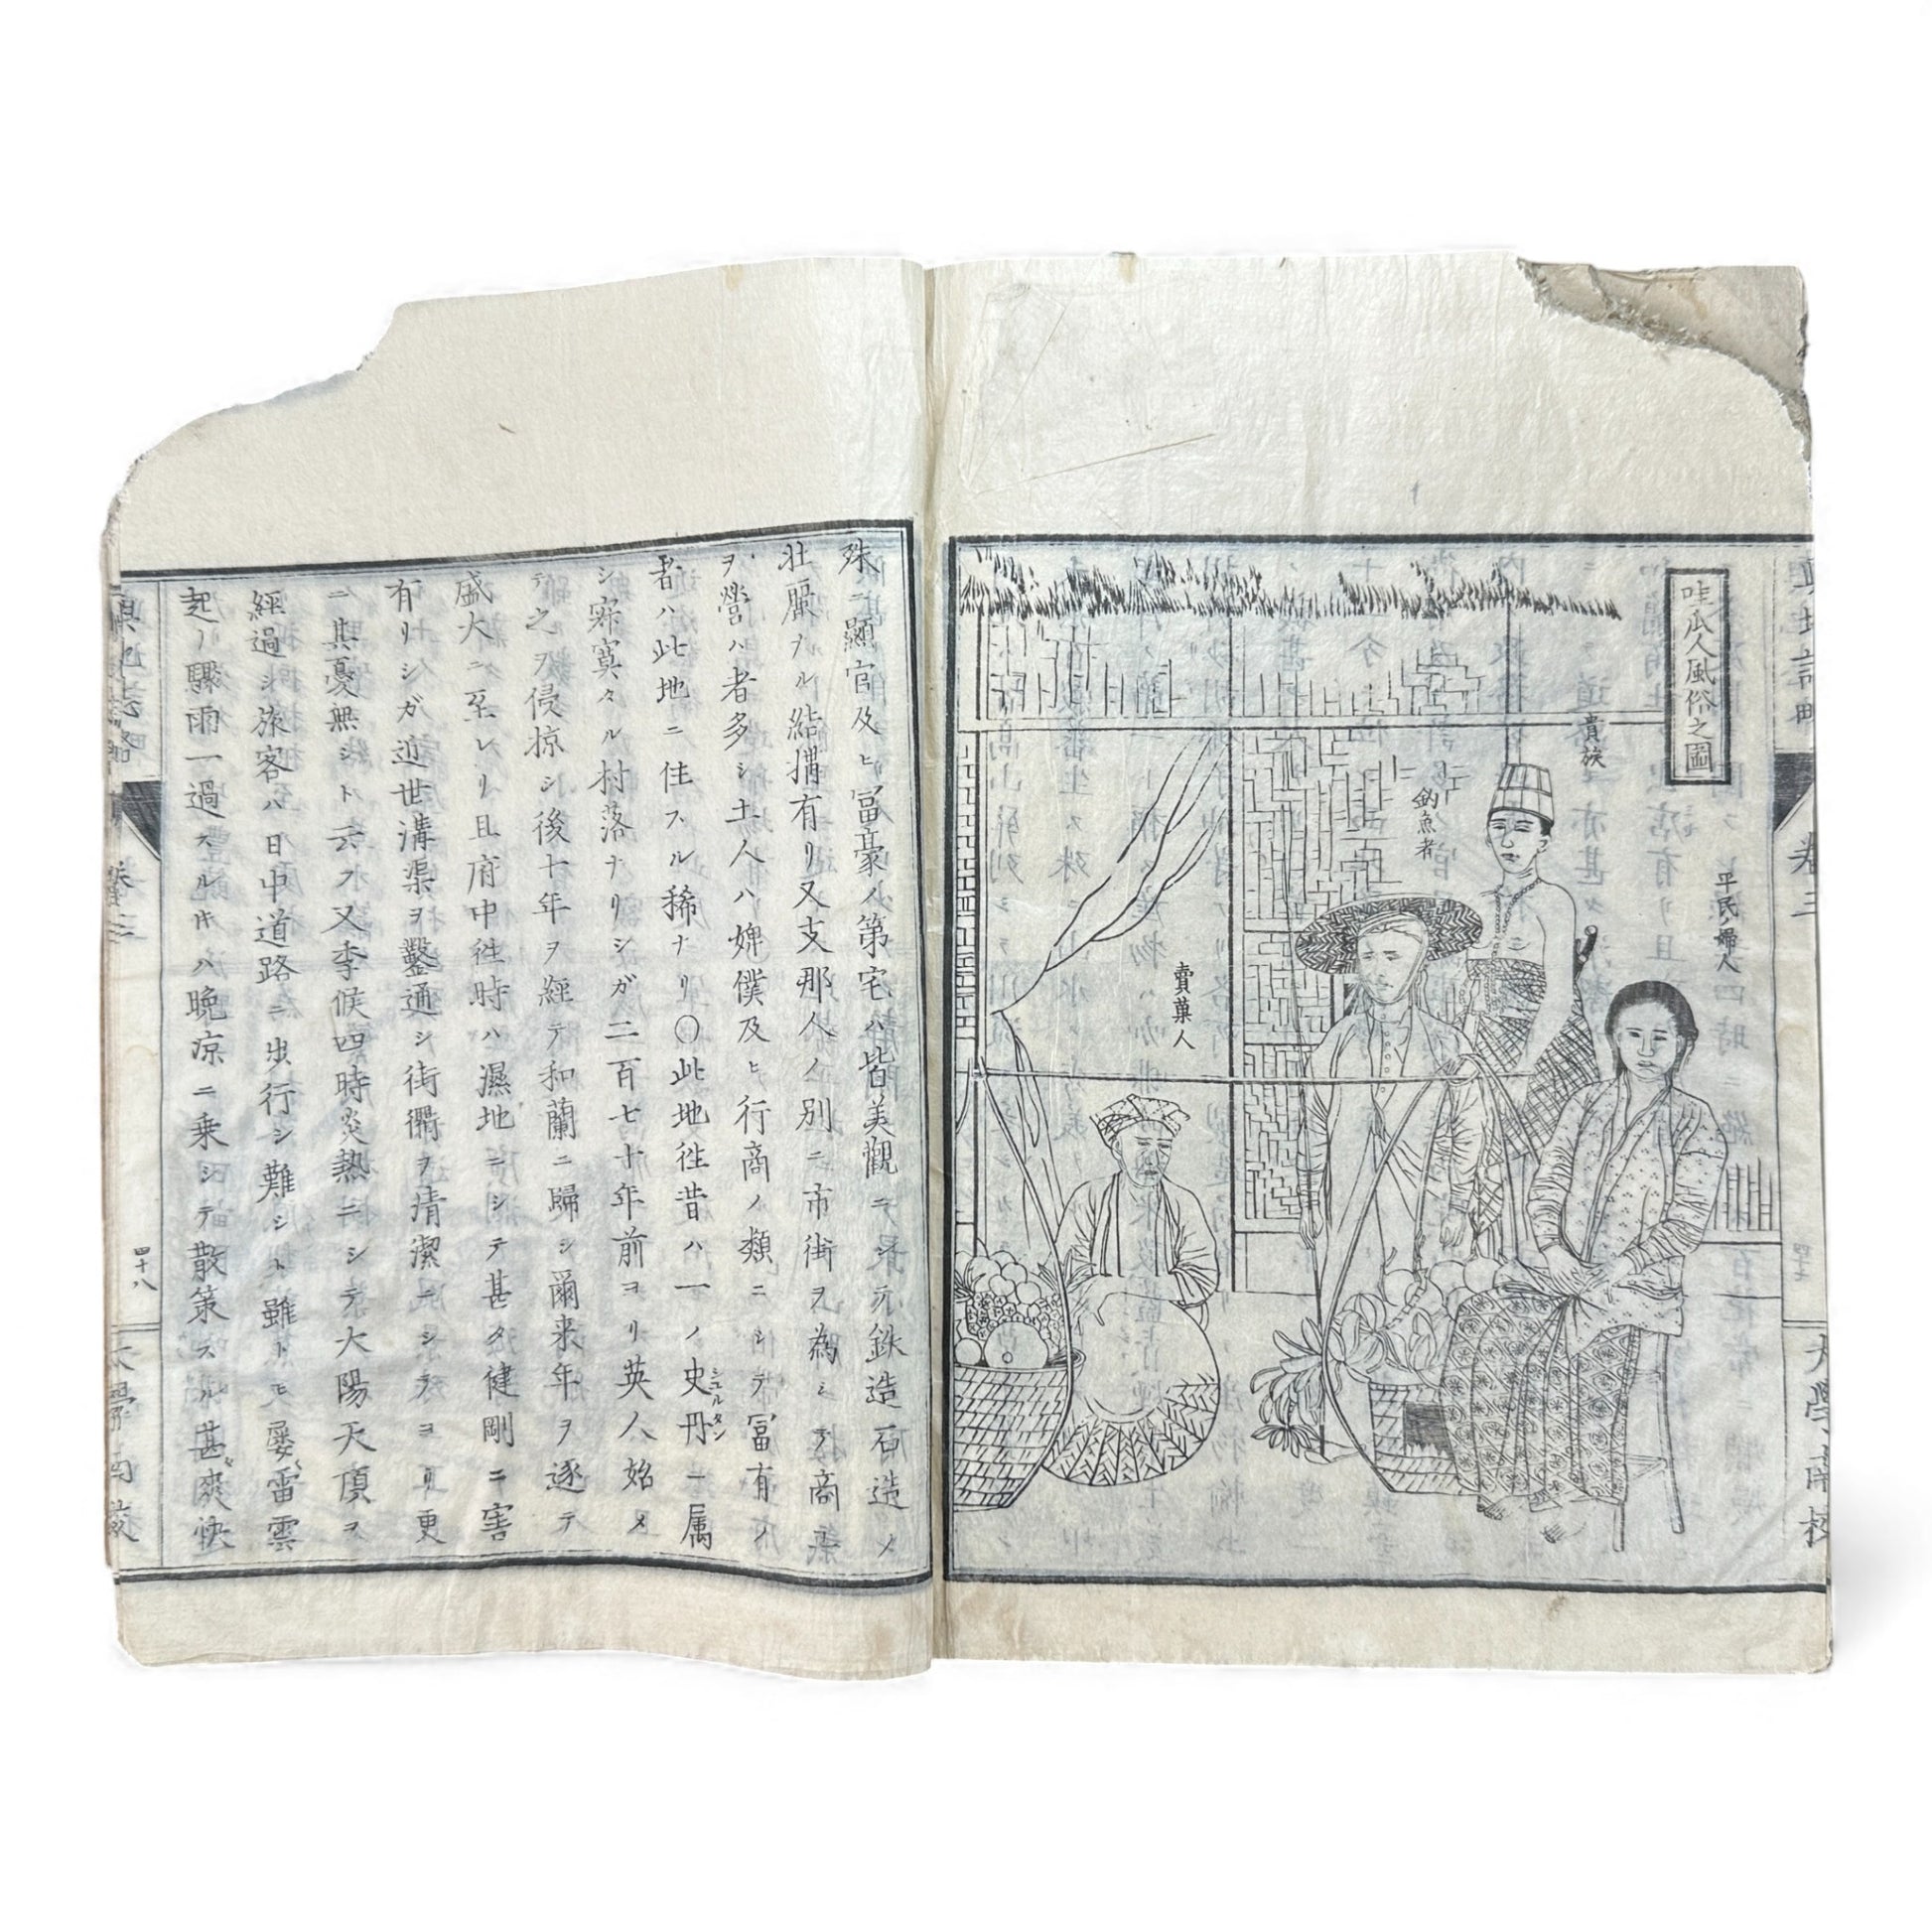 哇瓜人風俗之圖
貴族
釣魚者
平民ノ婦人
賣菓人
輿地誌略
卷三
大學南校
殊ニ顯官及ヒ冨豪ノ第宅ハ皆美觀ニシテ鉄造石造ノ
壮麗ナル結搆有リ又支那人ノ別ニ市街ヲ為シテ商業
ヲ營ム者多シ土人ハ婢僕及ヒ行商ノ類ニシテ冨有ノ
者ハ此地ニ住スル稀ナリ〇此地徃昔ハ一ノ史丹ニ属
シュルタン
シ寂寞タル村落ナリシガ二百七十年前ヨリ英人始メ
テ之ヲ侵掠シ後十年ヲ經テ和蘭ニ歸シ爾来年ヲ逐テ
盛大ニ至レリ且府中徃時ハ濕地ニシテ甚タ健剛ニ害
有リシガ近世溝渠ヲ鑿通シ街衢ヲ清潔ニシテヨリ更
ニ其憂無シト云フ又季候四時炎熱ニシテ大陽天頂ヲ
經過シ旅客ハ日中道路ニ出行シ難シト雖トモ屡雷雲
起リ驟雨一過スルキハ晩凉ニ乗シテ散策スル甚爽快
輿地誌略
卷三
四十八
大學南校